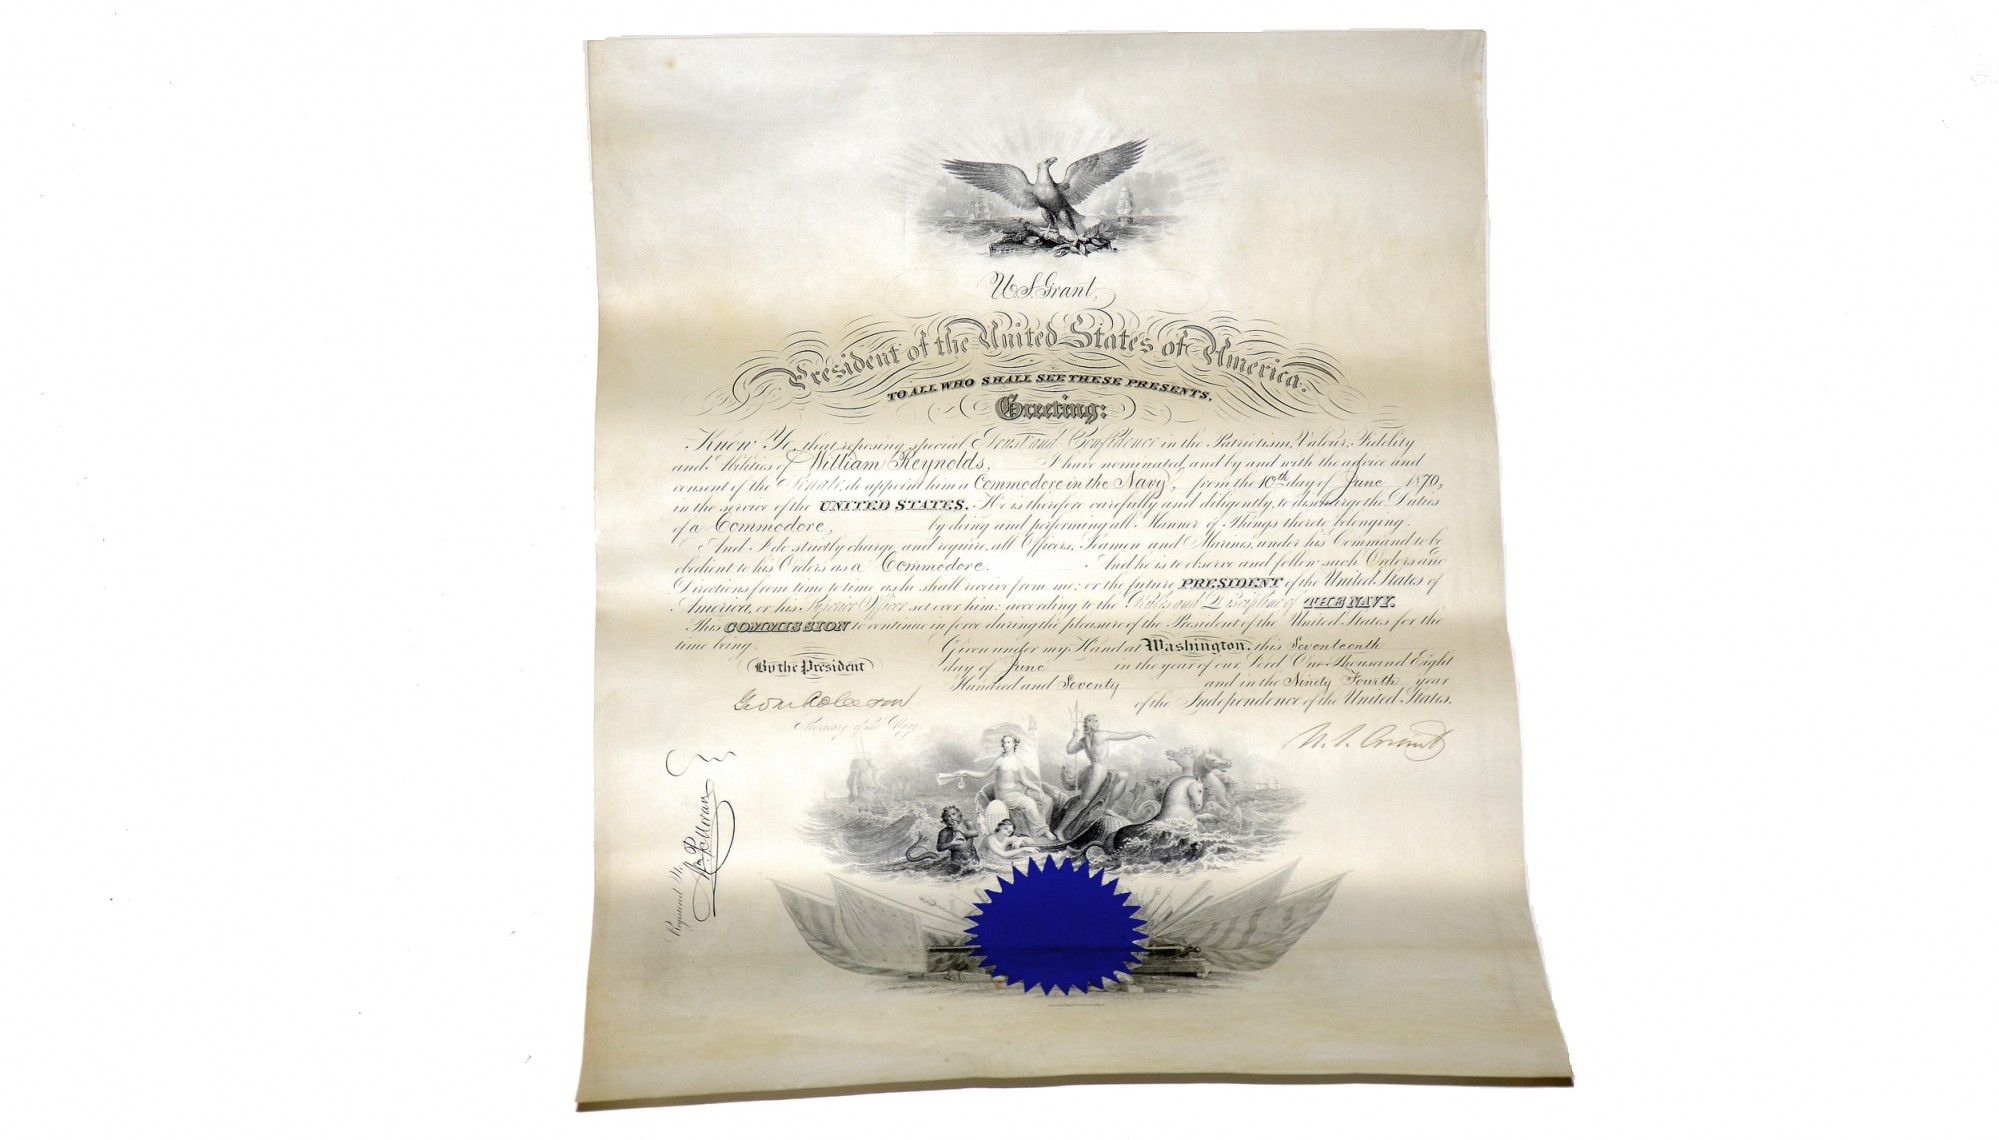 U.S. Grant,
President of the United States of America.
TO ALL WHO SHALL SEE THESE PRESENTS,
Greeting:
Know Ye, that reposing special Trust and Confidence in the Patriotism, Valour, Fidelity
and Abilities of William Reynolds, I have nominated, and by and with the advice and
consent of the Senate, do appoint him a Commodore in the Navy, from the 10th day of June 1870,
in the service of the UNITED STATES. He is therefore carefully and diligently to discharge the Duties
of a Commodore, by doing and performing all Manner of Things thereto belonging.
And I do strictly charge and require all Officers, Seamen and Marines, under his Command to be
obedient to his Orders as a Commodore. And he is to observe and follow such Orders and
Directions from time to time as he shall receive from me; or the future PRESIDENT of the United States of
America, or his Superior Officer set over him; according to the Rules and Discipline of THE NAVY.
This COMMISSION to continue in force during the pleasure of the President of the United States for the
time being.
Given under my Hand at Washington, this Seventeenth
day of June in the year of our Lord One Thousand Eight
Hundred and Seventy and in the Ninety Fourth year
of the Independence of the United States.
By the President
Geo M Robeson
Secretary of the Navy.
U. S. Grant
Registered